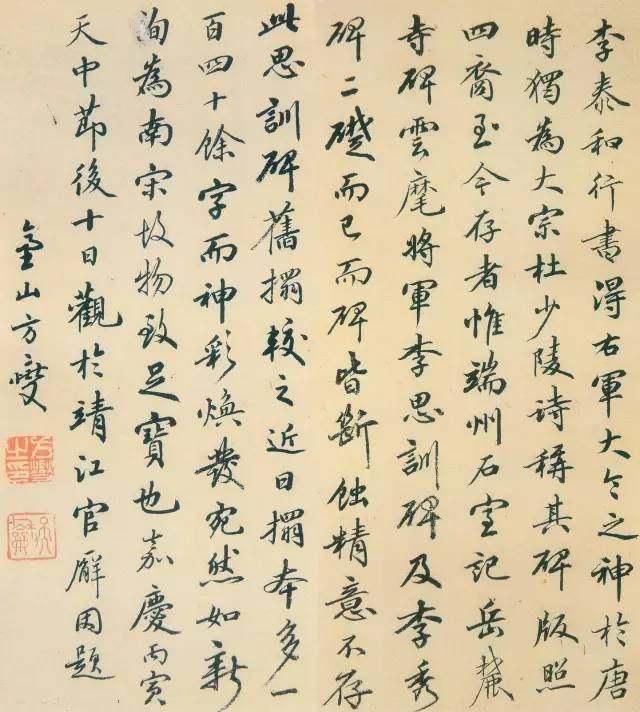 李泰和行書得右軍大令之神於唐
時獨為大宗杜少陵詩稱其碑版照
四裔至今存者惟端州石室記岳麓
寺碑雲麾將軍李思訓碑及李秀
碑二礎而已而碑皆斷蝕精意不存
此思訓碑舊搨較之近日搨本多一
百四十餘字而神彩煥發宛然如新
洵為南宋故物致足寶也嘉慶丙寅
天中節後十日觀於靖江官廨因題
臺山方燮